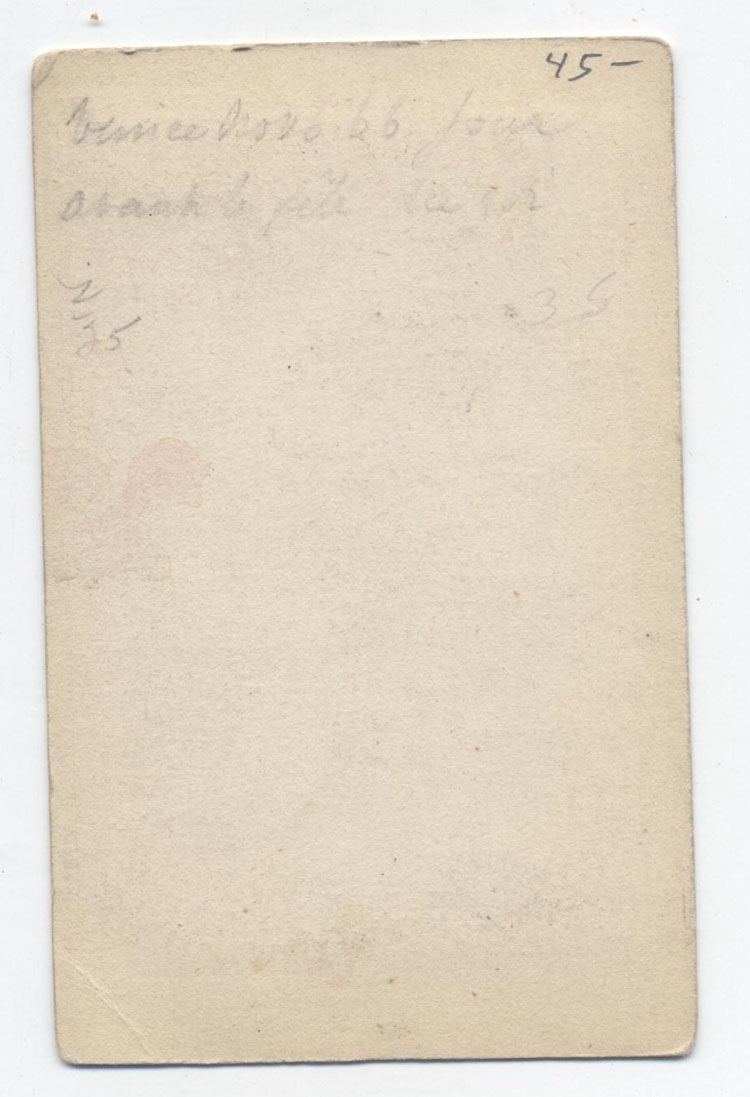 45-
Venice Nov 6. 66. jour
avant la fête
35
35